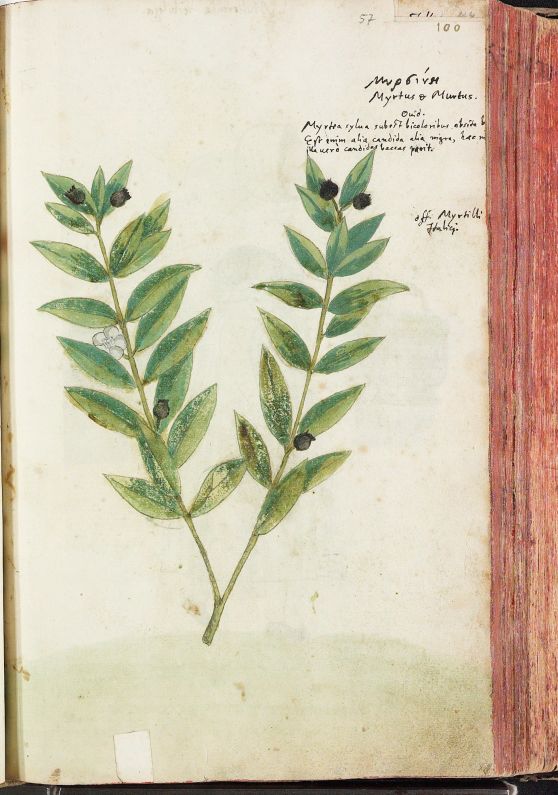 57
100
Μυρσίνη
Myrtus & Murtus.
Ouid.
Myrtea sylua subest bicoloribus obsita b
Est enim alia candida alia nigra, haec n
candidas baccas parit.
off. Myrtilli
Italicj.